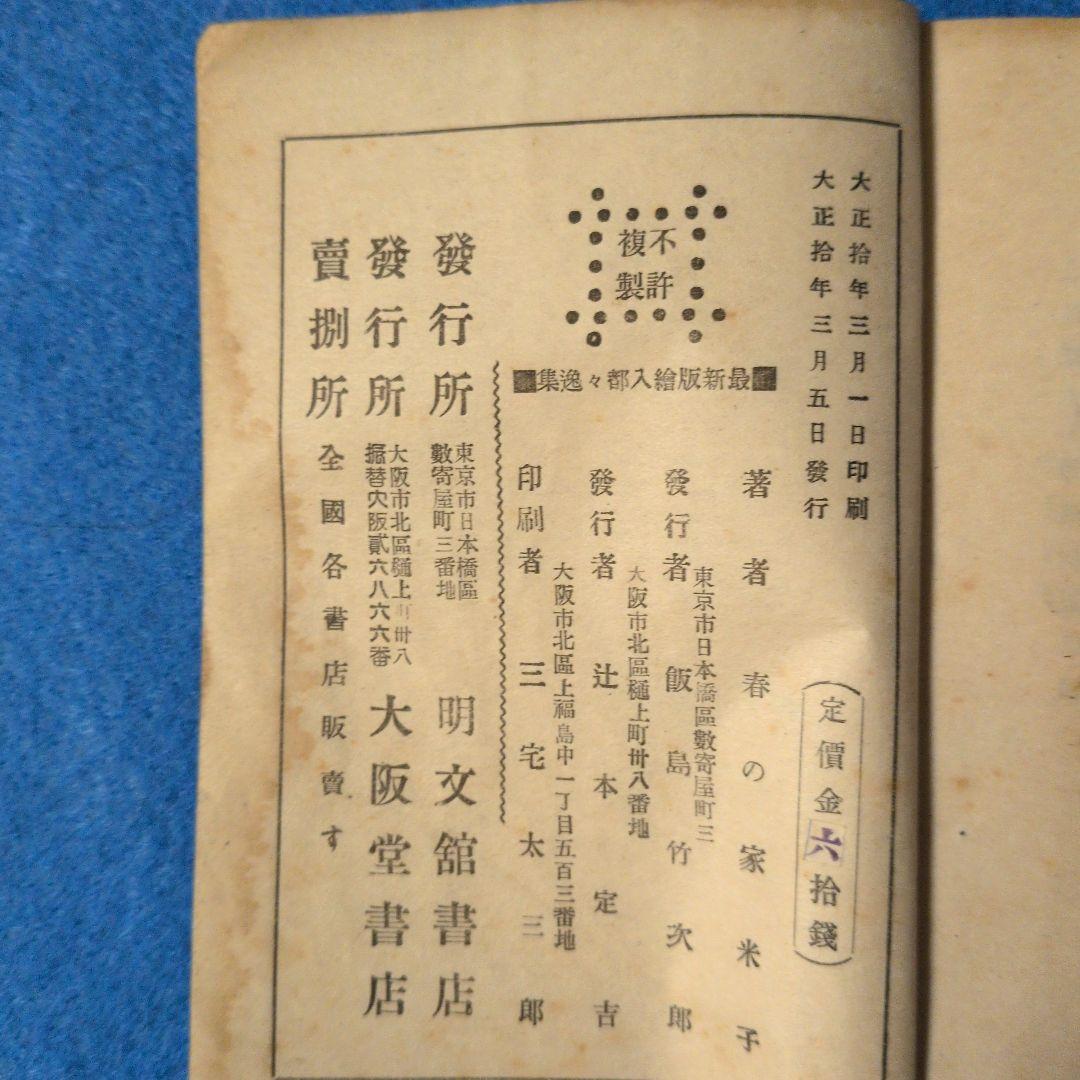 大正拾年三月一日印刷
大正拾年三月五日發行
(定價金六拾錢)
不許
複製
最新版繪入都々逸集
著者 春の家米子
東京市日本橋區數寄屋町三
發行者 飯島竹次郎
大阪市北區樋上町卅八番地
發行者 辻本定吉
大阪市北區上福島中一丁目五百三番地
印刷者 三宅太三郎
發行所 東京市日本橋區
數寄屋町三番地 明文舘書店
發行所 大阪市北區樋上町卅八
振替大阪貳六八六六番 大阪堂書店
賣捌所 全國各書店販賣す